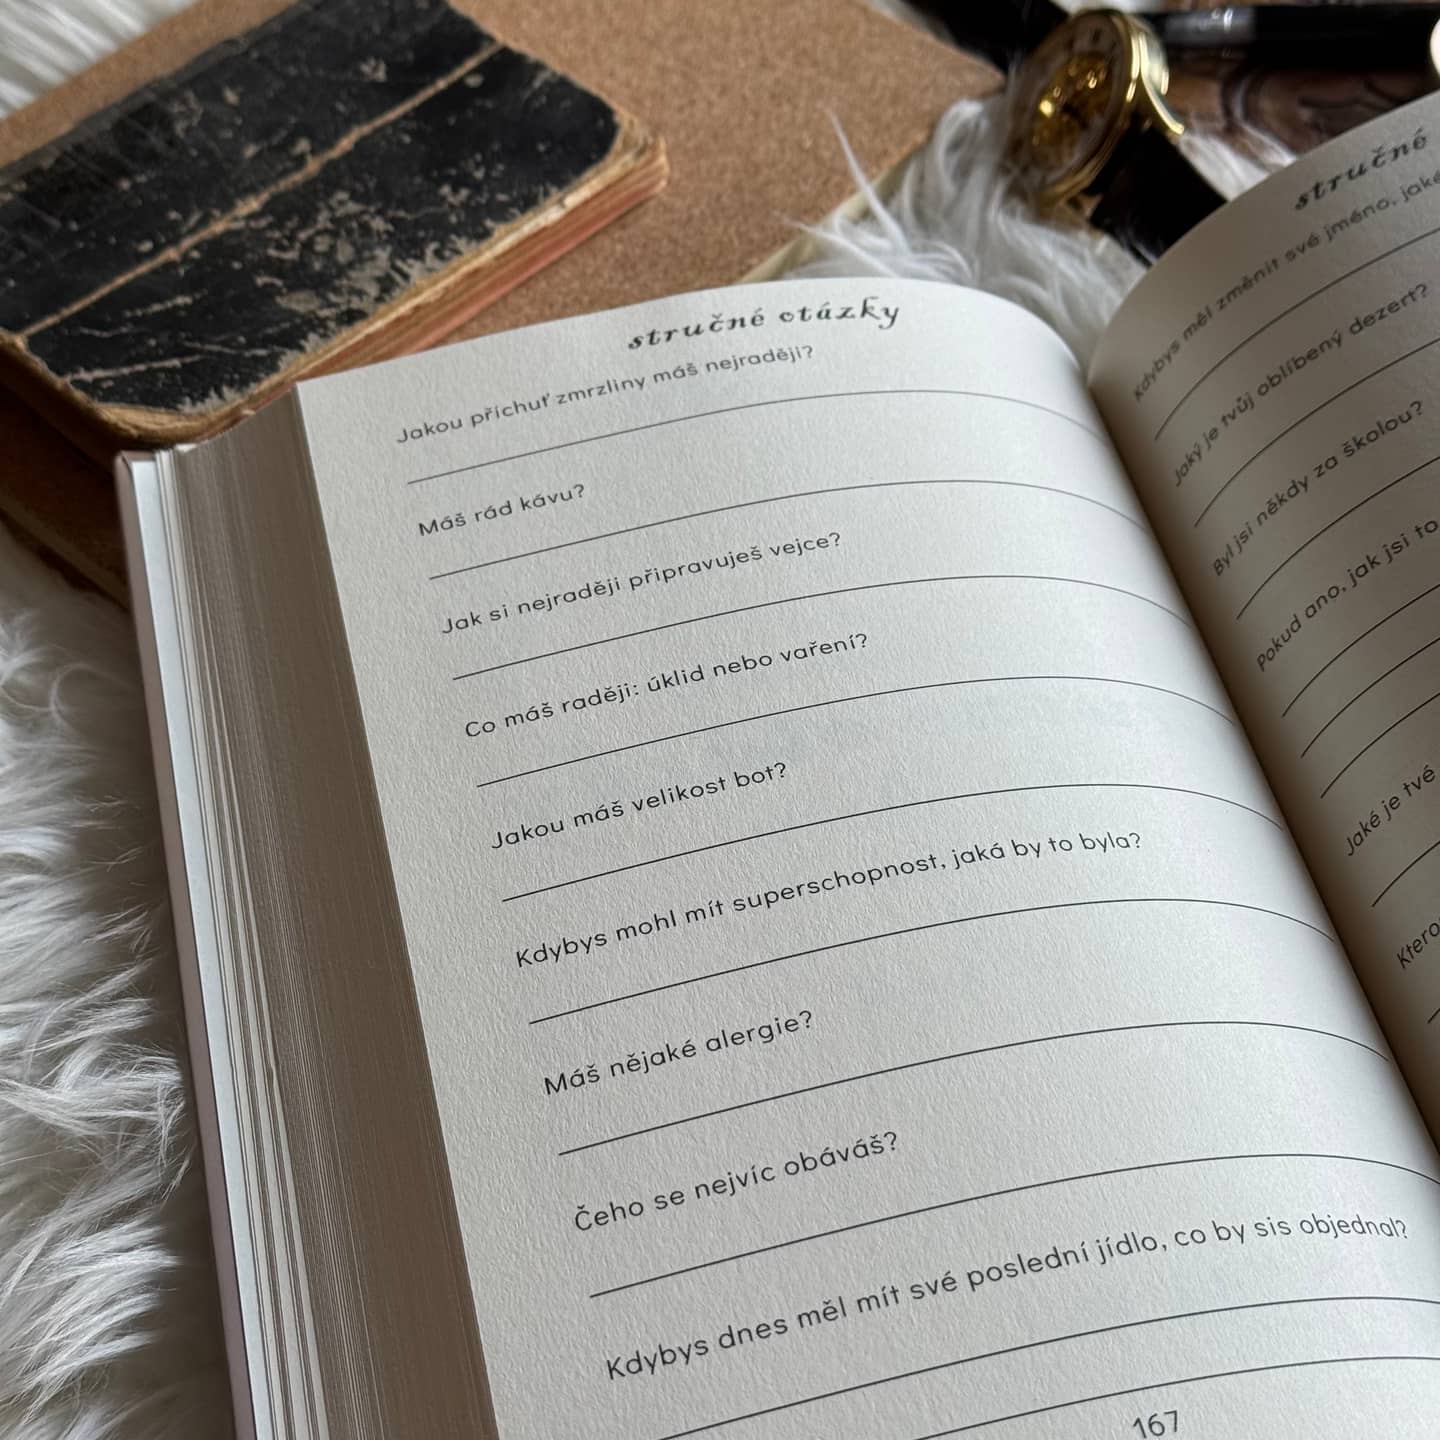 stručné otázky
Jakou příchuť zmrzliny máš nejraději?
Máš rád kávu?
Jak si nejraději připravuješ vejce?
Co máš raději: úklid nebo vaření?
Jakou máš velikost bot?
Kdybys mohl mít superschopnost, jaká by to byla?
Máš nějaké alergie?
Čeho se nejvíc obáváš?
Kdybys dnes měl mít své poslední jídlo, co by sis objednal?
167
stručné
Kdybys měl změnit své jméno, jaké
Jaký je tvůj oblíbený dezert?
Byl jsi někdy za školou?
Pokud ano, jak jsi to
Jaké je tvé